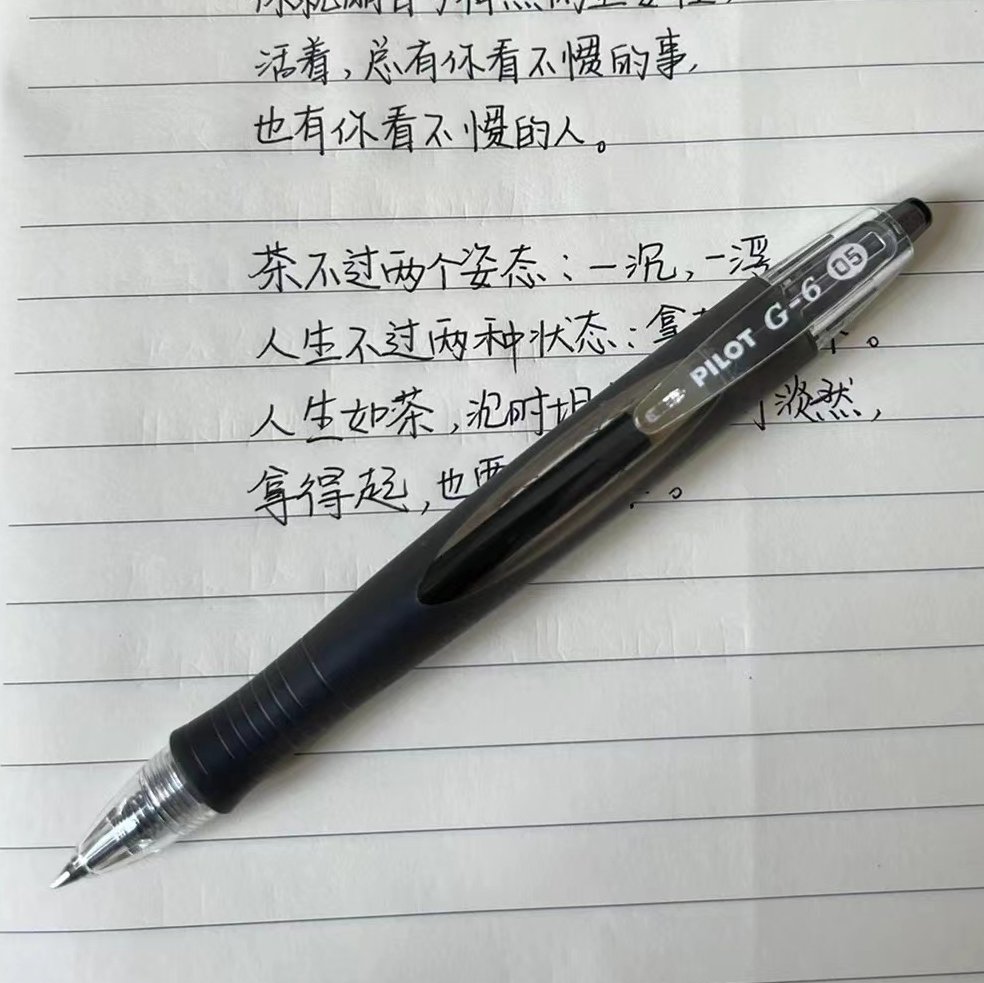 活着，总有你看不惯的事，
也有你看不惯的人。
茶不过两个姿态：一沉，一浮
人生不过两种状态：拿
人生如茶，沉时坦 淡然，
拿得起，也要 。
PILOT G-6 05